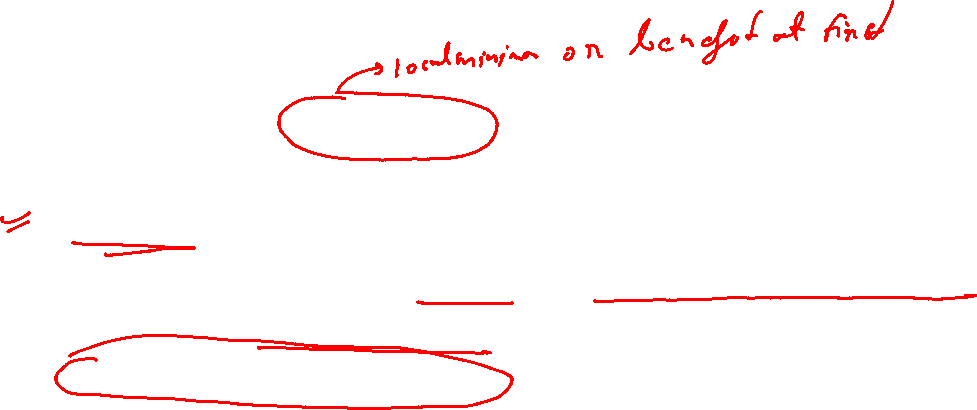 local minima or benefit at first